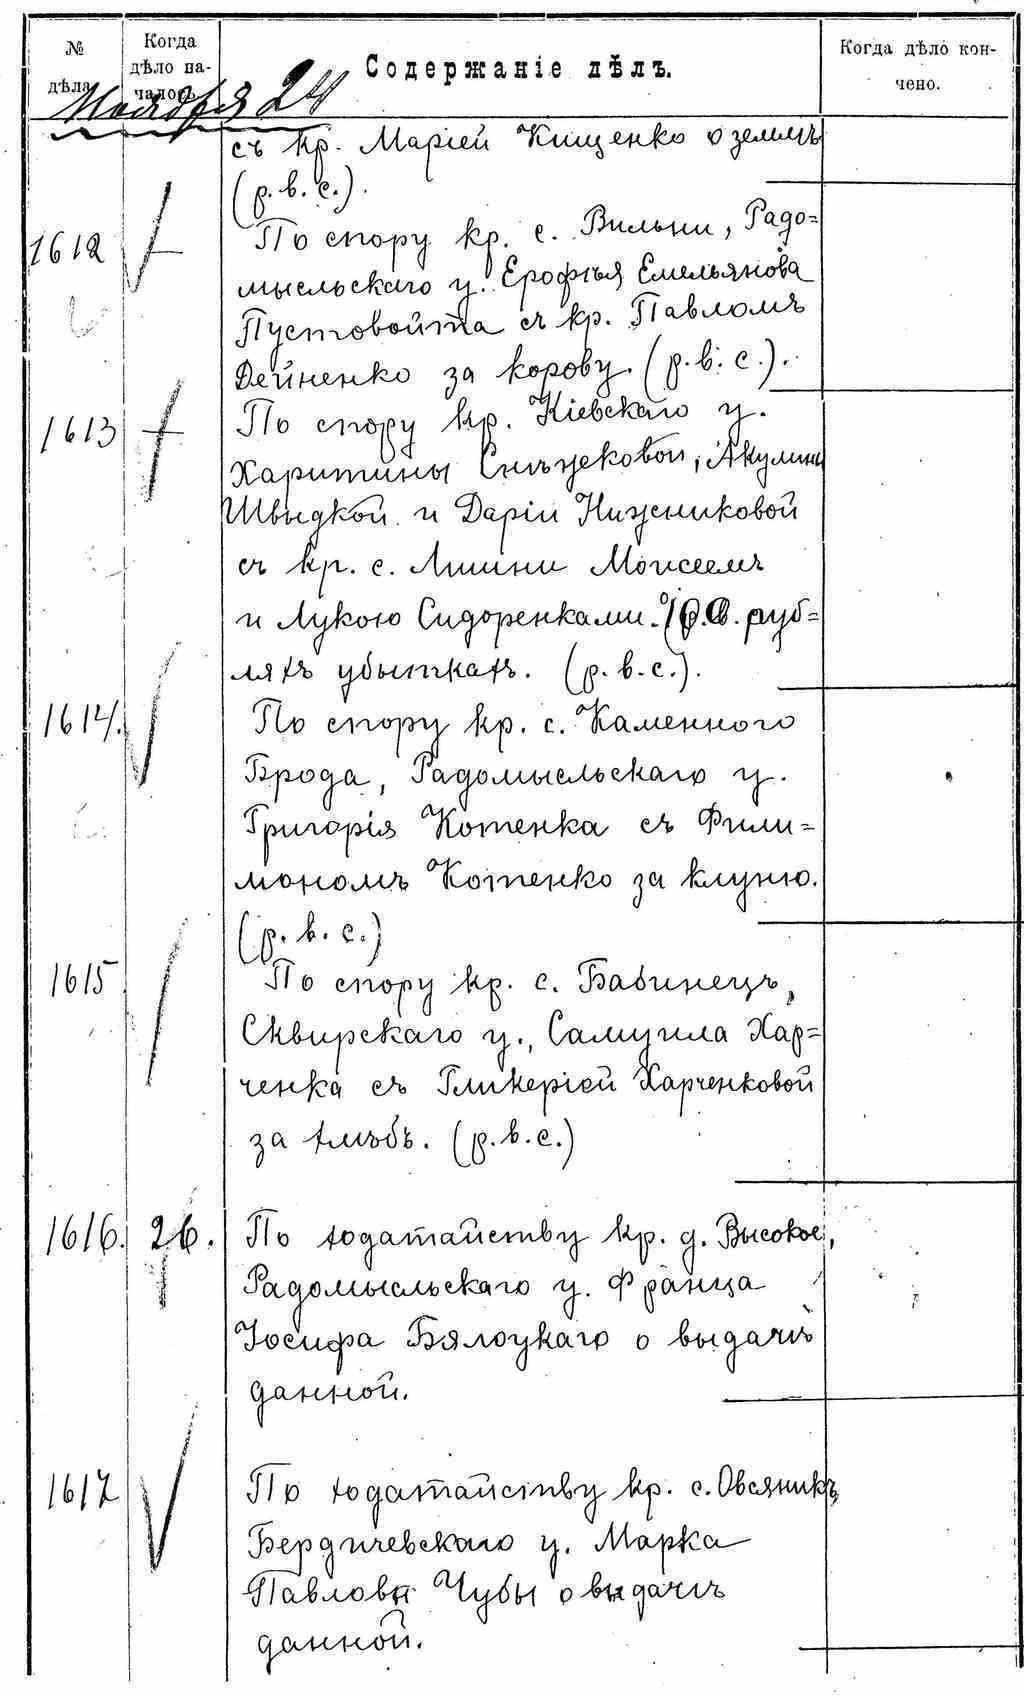 № дѣла
Когда дѣло началось
Содержаніе дѣлъ.
Когда дѣло кончено.
Ноября 24
съ кр. Маріей Кищенко о землѣ
(р. в. с.).
1612 По спору кр. с. Вильни, Радо=
мысльскаго у. Ерофѣя Емельянова
Пустовойта съ кр. Павломъ
Дейненко за корову. (р. в. с.).
1613 По спору кр. Кіевскаго у.
Харитины, Акулины
Швыдкой и Даріи Нижниковой
съ кр. с. Лишни Моисеемъ
и Лукою Сидоренками о 100 руб=
ляхъ убыткахъ. (р. в. с.).
1614. По спору кр. с. Каменного
Брода, Радомысльскаго у.
Григорія Котенка съ Фили=
мономъ Котенко за клуню.
(р. в. с.)
1615 По спору кр. с. Бабинецъ,
Сквирскаго у., Самуила Хар=
ченка съ Гликеріей Харченковой
за хлѣбъ. (р. в. с.)
1616. 26. По ходатайству кр. д. Высокое,
Радомысльскаго у. Франца
Іосифа Бялоцкаго о выдачѣ
данной.
1617 По ходатайству кр. с. Овсяникъ,
Бердичевскаго у. Марка
Павловы Чубы о выдачѣ
данной.